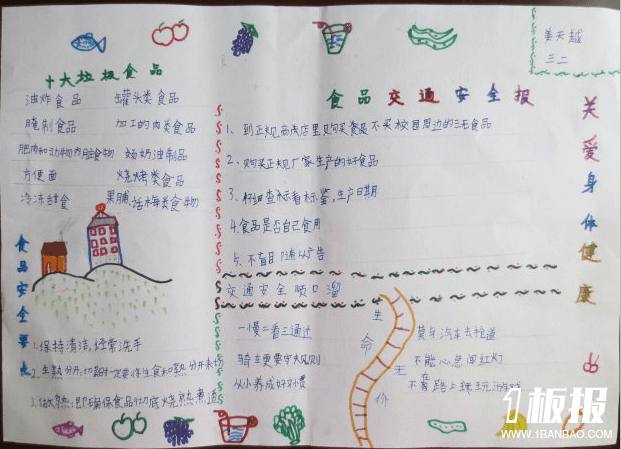 姜天越
三二
十大垃圾食品
油炸食品 罐头类食品
腌制食品 加工的肉类食品
肥肉和动物内脏食物 奶油制品
方便面 烧烤类食品
冷冻甜食 果脯、话梅类食物
食品安全要点
1.保持清洁,经常洗手
2.生熟分开,切菜时一定要将生食和熟 分开来切
3.做熟:即确保食品彻底烧熟煮透
食品交通安全报
1、到正规商店里购买食品 不买校园周边的三无食品
2、购买正规厂家生产的好食品
3、仔细查标看标签,生产日期
4.食品是否自己食用
5、不盲目随从广告
交通安全顺口溜
一慢二看三通过
骑车更要守大规则
从小养成好习惯
生命无价
莫与汽车去抢道
不能心急闯红灯
不在路上踢玩
关爱身体健康
1板报
WWW.1BANBAO.COM